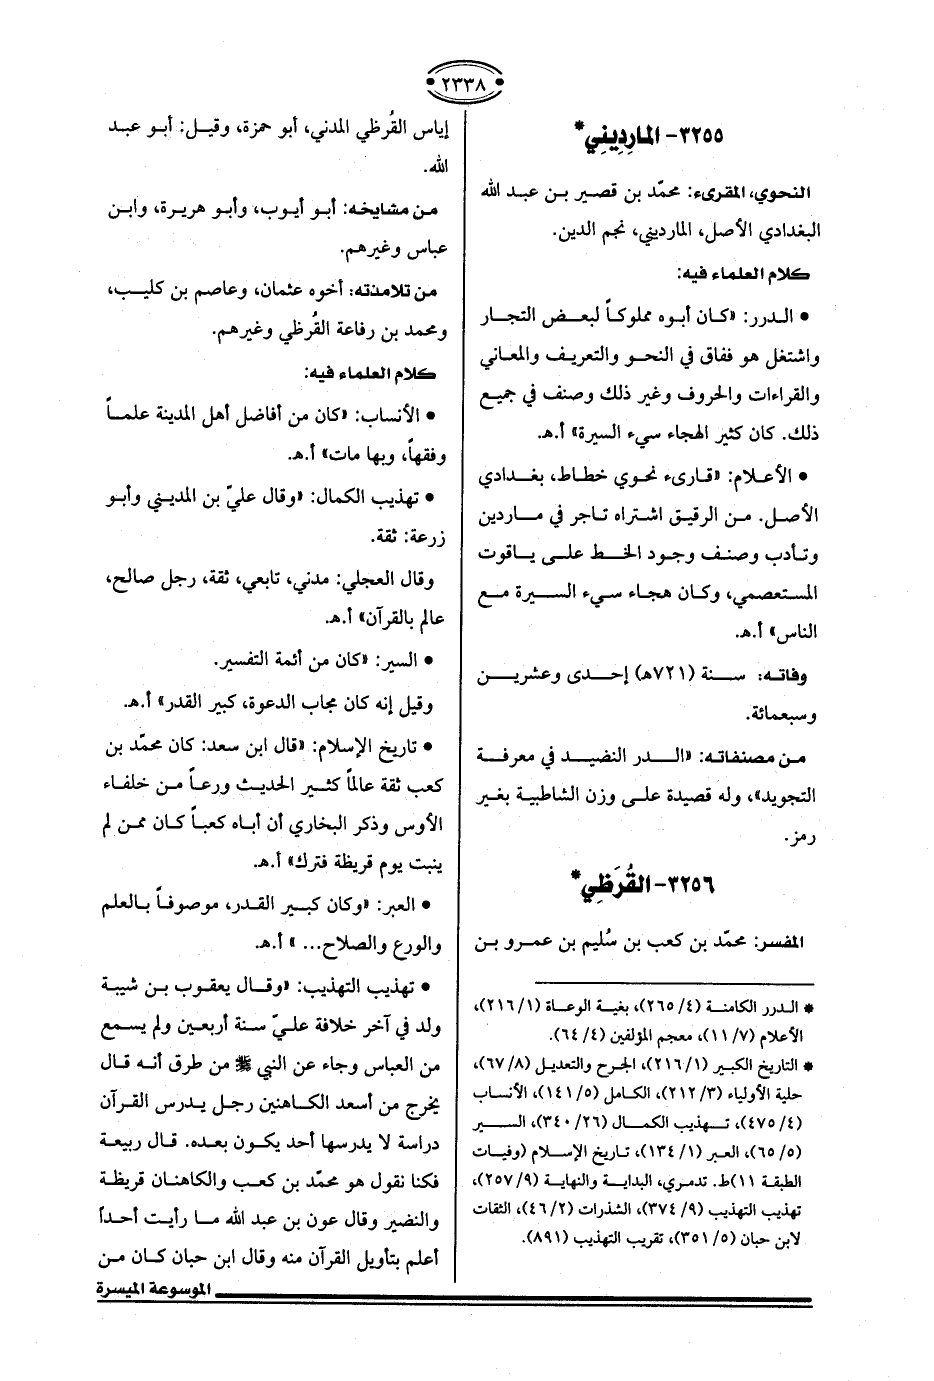 ٢٣٣٨
٣٢٥٥- المارِدِيني*
النحوي، المقرىء: محمّد بن قصير بن عبد الله
البغدادي الأصل، المارديني، نجم الدين.
كلام العلماء فيه:
• الدرر: «كان أبوه مملوكاً لبعض التجار
واشتغل هو ففاق في النحو والتعريف والمعاني
والقراءات والحروف وغير ذلك وصنف في جميع
ذلك. كان كثير الهجاء سيء السيرة» أ.هـ.
• الأعلام: «قارىء نحوي خطاط، بغدادي
الأصل. من الرقيق اشتراه تاجر في ماردين
وتأدب وصنف وجود الخط على ياقوت
المستعصمي، وكان هجاء سيء السيرة مع
الناس» أ.هـ.
وفاته: سنة (٧٢١هـ) إحدى وعشرين
وسبعمائة.
من مصنفاته: «الدر النضيد في معرفة
التجويد»، وله قصيدة على وزن الشاطبية بغير
رمز.
٣٢٥٦- القُرَظي*
المفسر: محمّد بن كعب بن سُليم بن عمرو بن
* الدرر الكامنة (٤/ ٢٦٥)، بغية الوعاة (١/ ٢١٦)،
الأعلام (٧/ ١١)، معجم المؤلفين (٤/ ٦٤).
* التاريخ الكبير (١/ ٢١٦)، الجرح والتعديل (٨/ ٦٧)،
حلية الأولياء (٣/ ٢١٢)، الكامل (٥/ ١٤١)، الأنساب
(٤/ ٤٧٥)، تهذيب الكمال (٢٦/ ٣٤٠)، السير
(٥/ ٦٥)، العبر (١/ ١٣٤)، تاريخ الإسلام (وفيات
الطبقة ١١) ط. تدمري، البداية والنهاية (٩/ ٢٥٧)،
تهذيب التهذيب (٩/ ٣٧٤)، الشذرات (٢/ ٤٦)، الثقات
لابن حبان (٥/ ٣٥١)، تقريب التهذيب (٨٩١).
إياس القُرظي المدني، أبو حمزة، وقيل: أبو عبد
الله.
من مشايخه: أبو أيوب، وأبو هريرة، وابن
عباس وغيرهم.
من تلامذته: أخوه عثمان، وعاصم بن كليب،
ومحمد بن رفاعة القُرظي وغيرهم.
كلام العلماء فيه:
• الأنساب: «كان من أفاضل أهل المدينة علماً
وفقهاً، وبها مات» أ.هـ.
• تهذيب الكمال: «وقال عليّ بن المديني وأبو
زرعة: ثقة.
وقال العجلي: مدني، تابعي، ثقة، رجل صالح،
عالم بالقرآن» أ.هـ.
• السير: «كان من أئمة التفسير.
وقيل إنه كان مجاب الدعوة، كبير القدر» أ.هـ.
• تاريخ الإسلام: «قال ابن سعد: كان محمّد بن
كعب ثقة عالماً كثير الحديث ورعاً من خلفاء
الأوس وذكر البخاري أن أباه كعباً كان ممن لم
ينبت يوم قريظة فترك» أ.هـ.
• العبر: «وكان كبير القدر، موصوفاً بالعلم
والورع والصلاح... » أ.هـ.
• تهذيب التهذيب: «وقال يعقوب بن شيبة
ولد في آخر خلافة عليّ سنة أربعين ولم يسمع
من العباس وجاء عن النبي ﷺ من طرق أنه قال
يخرج من أسعد الكاهنين رجل يدرس القرآن
دراسة لا يدرسها أحد يكون بعده. قال ربيعة
فكنا نقول هو محمّد بن كعب والكاهنان قريظة
والنضير وقال عون بن عبد الله ما رأيت أحداً
أعلم بتأويل القرآن منه وقال ابن حبان كان من
الموسوعة الميسرة